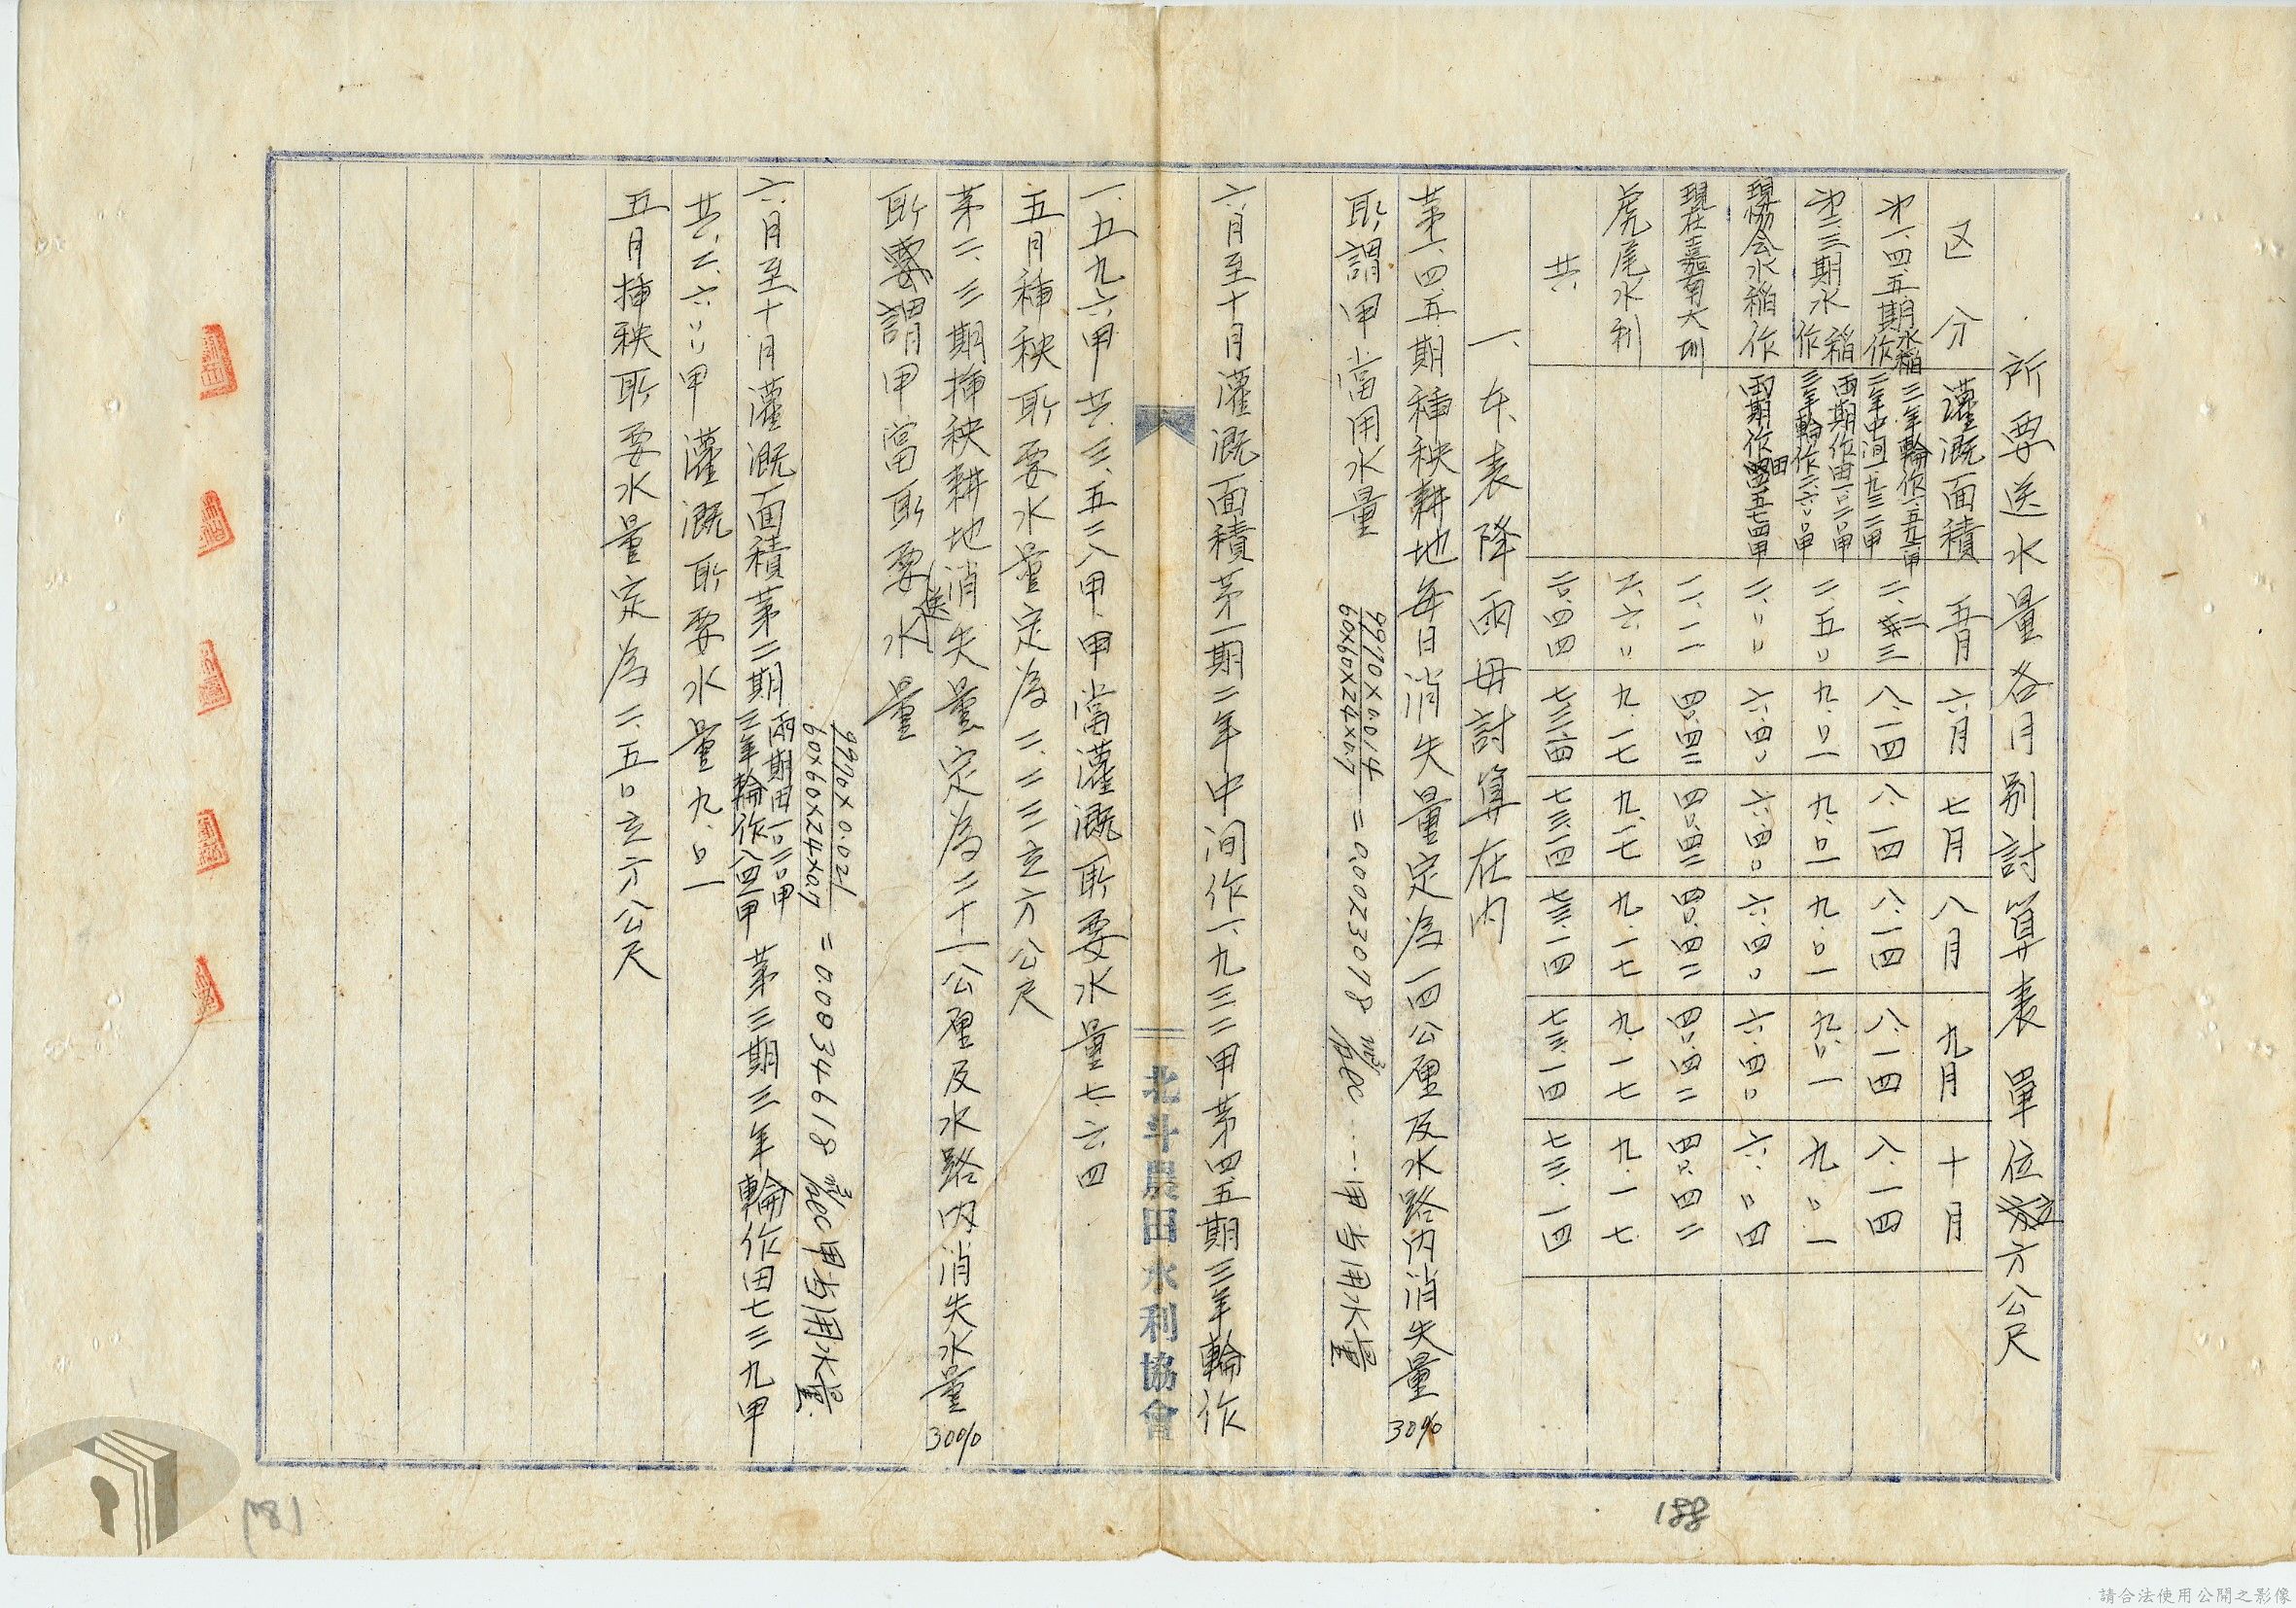 所要送水量各月別討算表 單位立方公尺
区分 灌溉面積 五月 六月 七月 八月 九月 十月
第一.四.五.期水稻作 三年輪作一.五九六甲 二年中间一.九三二甲 二.二三 八.一四 八.一四 八.一四 八.一四 八.一四
第二.三期水稻作 両期作田一〇二〇甲 三年輪作二.六〇〇甲 二.五〇 九.〇一 九.〇一 九.〇一 九.〇一 九.〇一
現協会水稲作 両期作田四五七四甲 二.〇〇 六.四〇 六.四〇 六.四〇 六.四〇 六.〇四
現在嘉南大圳 一一.一一 四〇.四二 四〇.四二 四〇.四二 四〇.四二 四〇.四二
虎尾水利 二.六〇 九.一七 九.一七 九.一七 九.一七 九.一七
共. 二〇.四四 七三.一四 七三.一四 七三.一四 七三.一四 七三.一四
一、本表降雨毋討算在内
第一.四.五.期種秧耕地每日消失量定為一四公厘及水路内消失量30%
所謂甲當用水量 9970×0.014/60×60×24×0.7 = 0.0023078 m3/sec ---甲当用水量
六.月至十月灌溉面積第一期二年中间作一.九三二甲第四.五期三年輪作
一.五九六甲共.三.五二八甲.甲當灌溉所要水量七.六四
五月種秧所要水量定為二.二三立方公尺
第二.三期挿秧耕地消失量定為二十一公厘及水路内消失水量30%
所謂甲當所要送水量 9970×0.021/60×60×24×0.7 = 0.0034618 m3/sec甲当用水量.
六.月至十月灌溉面積第二期両期田一〇二〇甲三年輪作八四一甲 第三期三年輪作田七三九甲
共.二.六〇〇甲灌溉所要水量九.〇一
五月挿秧所要水量定為二.五〇立方公尺
北斗農田水利協會
188
請合法使用公開之影像